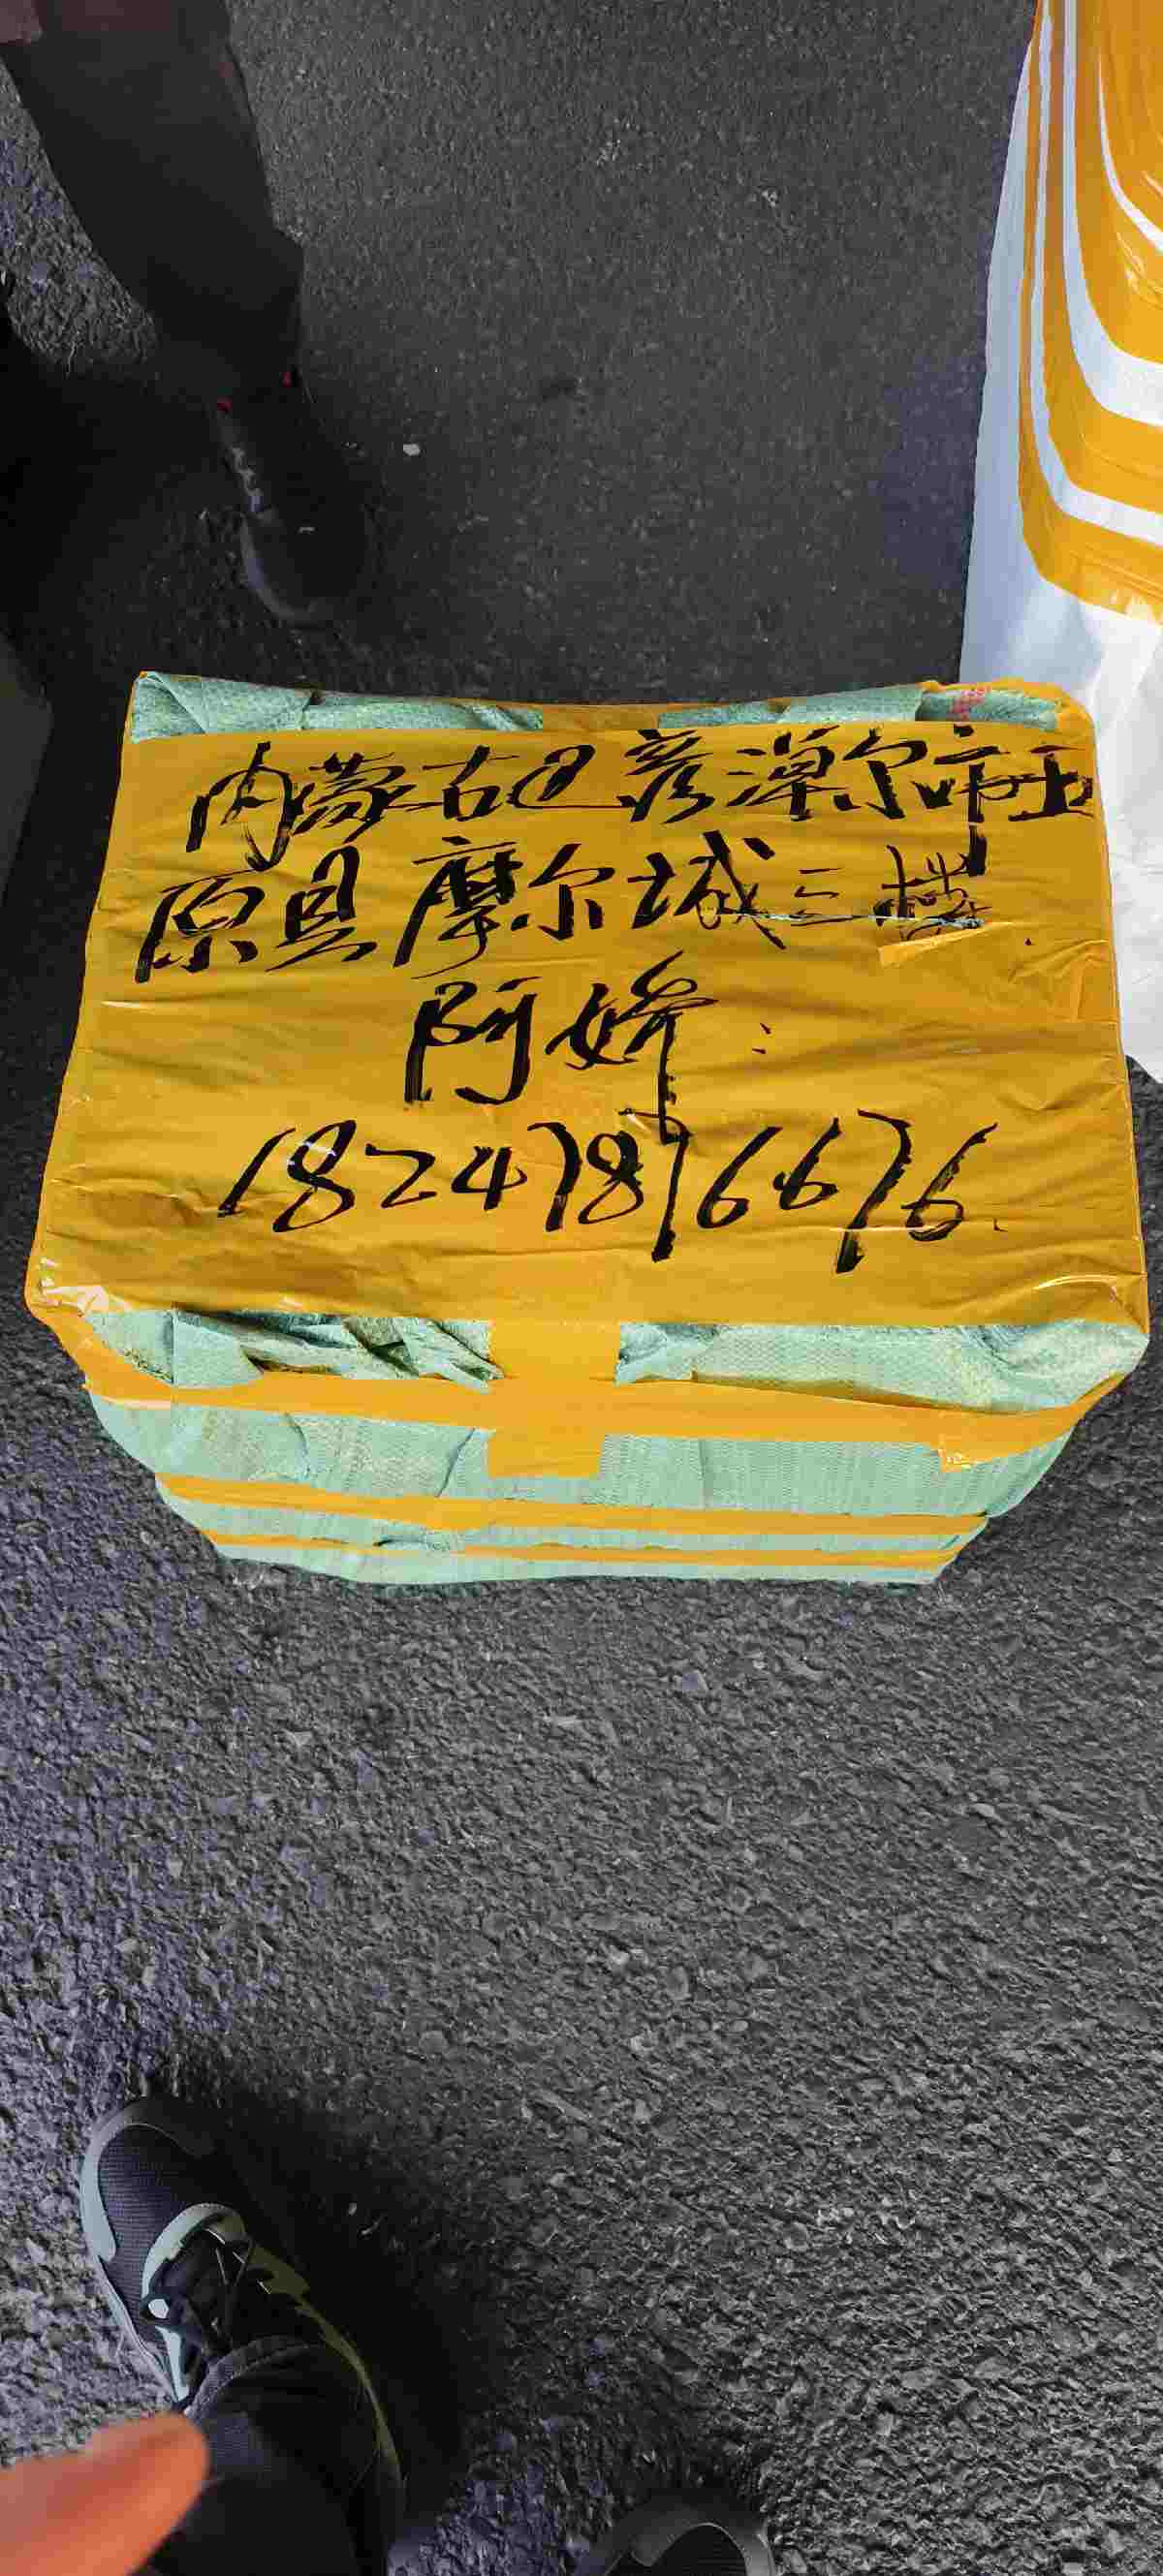 内蒙古巴彦淖尔市五
原县摩尔城三楼
阿娇:
18247896676